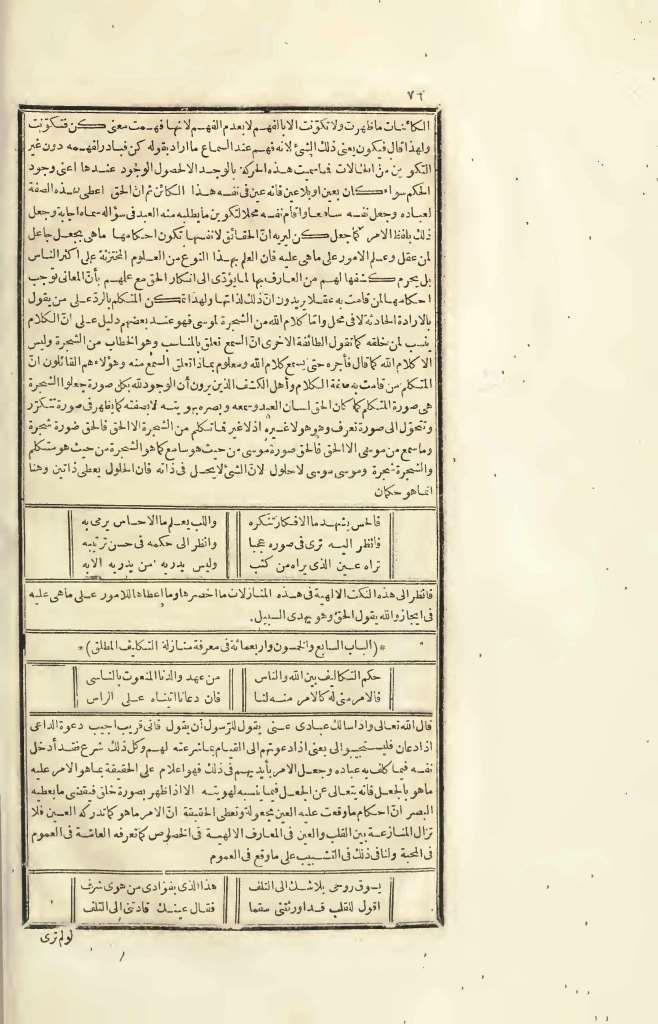 ٧٦
الكائنات ما ظهرت ولا تكونت الا بالفهم لا بعدم الفهم لانها فهمت معنى كن فتكونت
ولهذا قال فيكون يعنى ذلك الشئ لانه فهم عند السماع ما اراد بقوله كن فبادر لفهمه دون غير
التكوين من الحالات فما سميت هذه الحركة بالوجد الا لحصول الوجود عندها اعنى وجود
الحكم سواء كان بعين او بلا عين فانه عين فى نفسه هذا الكائن ثم ان الحق اعطى هذه الصفة
لعباده وجعل نفسه سامعا واقام نفسه محلا لتكوين ما يطلبه منه العبد فى سؤاله سماه اجابة وجعل
ذلك بلفظ الامر كما جعل كن ليريه ان الحقائق لانفسها تكون احكامها ما هى بجعل جاعل
لمن عقل وعلم الامور على ماهى عليه فان العلم بهذا النوع من العلوم المختزنة على اكثر الناس
بل يحرم كشفها لهم من العارف بها لما يؤدى الى انكار الحق مع علمهم بأن المعانى توجب
احكامها لمن قامت به عقلا يريدون ان ذلك لذاتها ولهذا تمكن المتكلم بالرد على من يقول
بالارادة الحادثة لا فى محل واما كلام الله من الشجرة لموسى فهو عند بعضهم دليل على ان الكلام
ينسب لمن خلقه كما تقول الطائفة الاخرى ان السمع تعلق بالمناسب وهو الخطاب من الشجرة وليس
الا كلام الله كما قال فأجره حتى يسمع كلام الله ومعلوم بماذا تعلق السمع منه وهؤلاء هم القائلون ان
المتكلم من قامت به صفة الكلام وأهل الكشف الذين يرون أن الوجود لله بكل صورة جعلوا الشجرة
هى صورة المتكلم كما كان الحق لسان العبد وسمعه وبصره بهويته لا بصفته كما يظهر فى صورة تنكر
وتتحول الى صورة تعرف وهو هو لا غيره اذ لا غير فما تكلم من الشجرة الا الحق فالحق صورة شجرة
وما سمع من موسى الا الحق فالحق صورة موسى من حيث هو سامع كما هو الشجرة من حيث هو متكلم
والشجرة شجرة وموسى موسى لا حلول لان الشئ لا يحل فى ذاته فان الحلول يعطى ذاتين وهنا
انما هو حكمان
فالحس يشهد ما الافكار تنكره واللب يعلم ما الاحساس يرمى به
فانظر اليه ترى فى صوره عجبا وانظر الى حكمه فى حسن ترتيبه
تراه عين الذى يراه من كثب وليس يدريه من يدريه الا به
فانظر الى هذه النكت الالهية فى هذه المنازلات ما اخصرها وما اعطاها للامور على ماهى عليه
فى ايجاز والله يقول الحق وهو يهدى السبيل.
* (الباب السابع والخمسون واربعمائة فى معرفة منازلة التكليف المطلق) *
حكم التكاليف بين الله والناس من عهد والدنا المنعوت بالناسى
فالامر منى له كالامر منه لنا فان دعانا اتيناه على الراس
قال الله تعالى واذا سالك عبادى عنى يقول للرسول أن يقول فانى قريب اجيب دعوة الداعى
اذا دعان فليستجيبوا لى يعنى اذا دعوتهم الى القيام بما شرعته لهم وكل ذلك شرع فقد أدخل
نفسه فيما كلف به عباده وجعل الامر بأيديهم فى ذلك فهو اعلام على الحقيقة بما هو الامر عليه
ما هو بالجعل فانه يتعالى عن الجعل فيما ينسبه لهويته الا اذا ظهر بصورة خلق فيقضى ما يعطيه
البصر ان احكام ما وقعت عليه العين مجعولة وتعطى الحقيقة ان الامر ما هو كما تدركه العين فلا
تزال المنازعة بين القلب والعين فى المعارف الالهية فى الخصوص كما تعرفه العامة فى العموم
فى المحبة ولنا فى ذلك فى التشبيب على ما وقع فى العموم
يسوق روحى بلا شك الى التلف هذا الذى بفؤادى من هوى شرف
اقول للقلب قد اورثتنى سقما فقال عينك قادتنى الى التلف
لو لم ترى